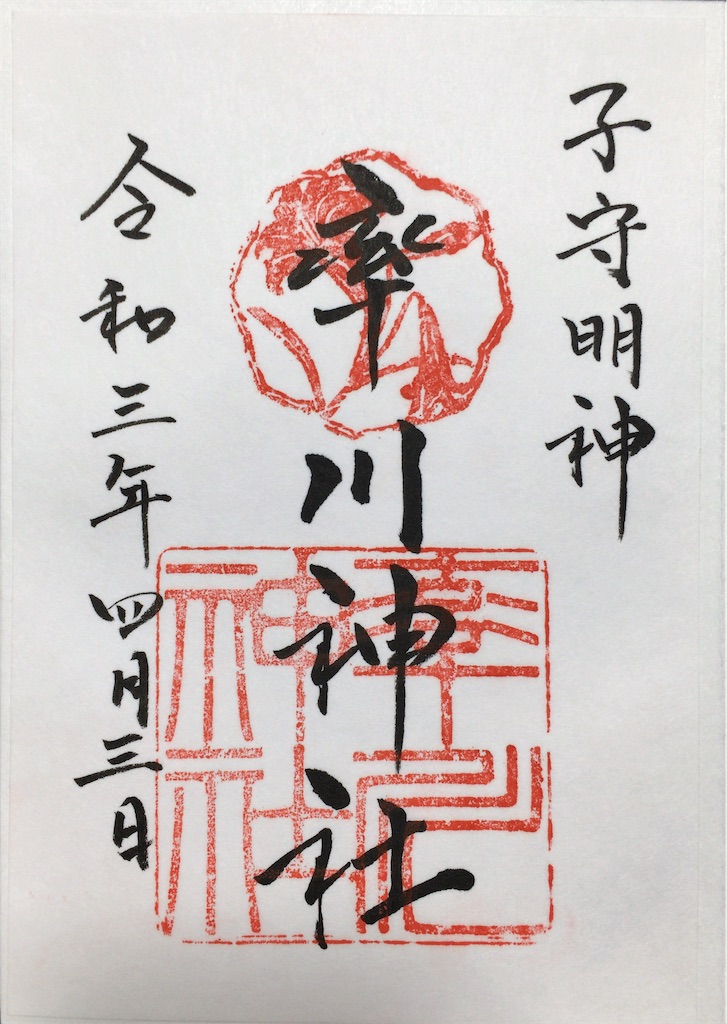 子守明神
率川神社
令和三年四月三日
率川神社